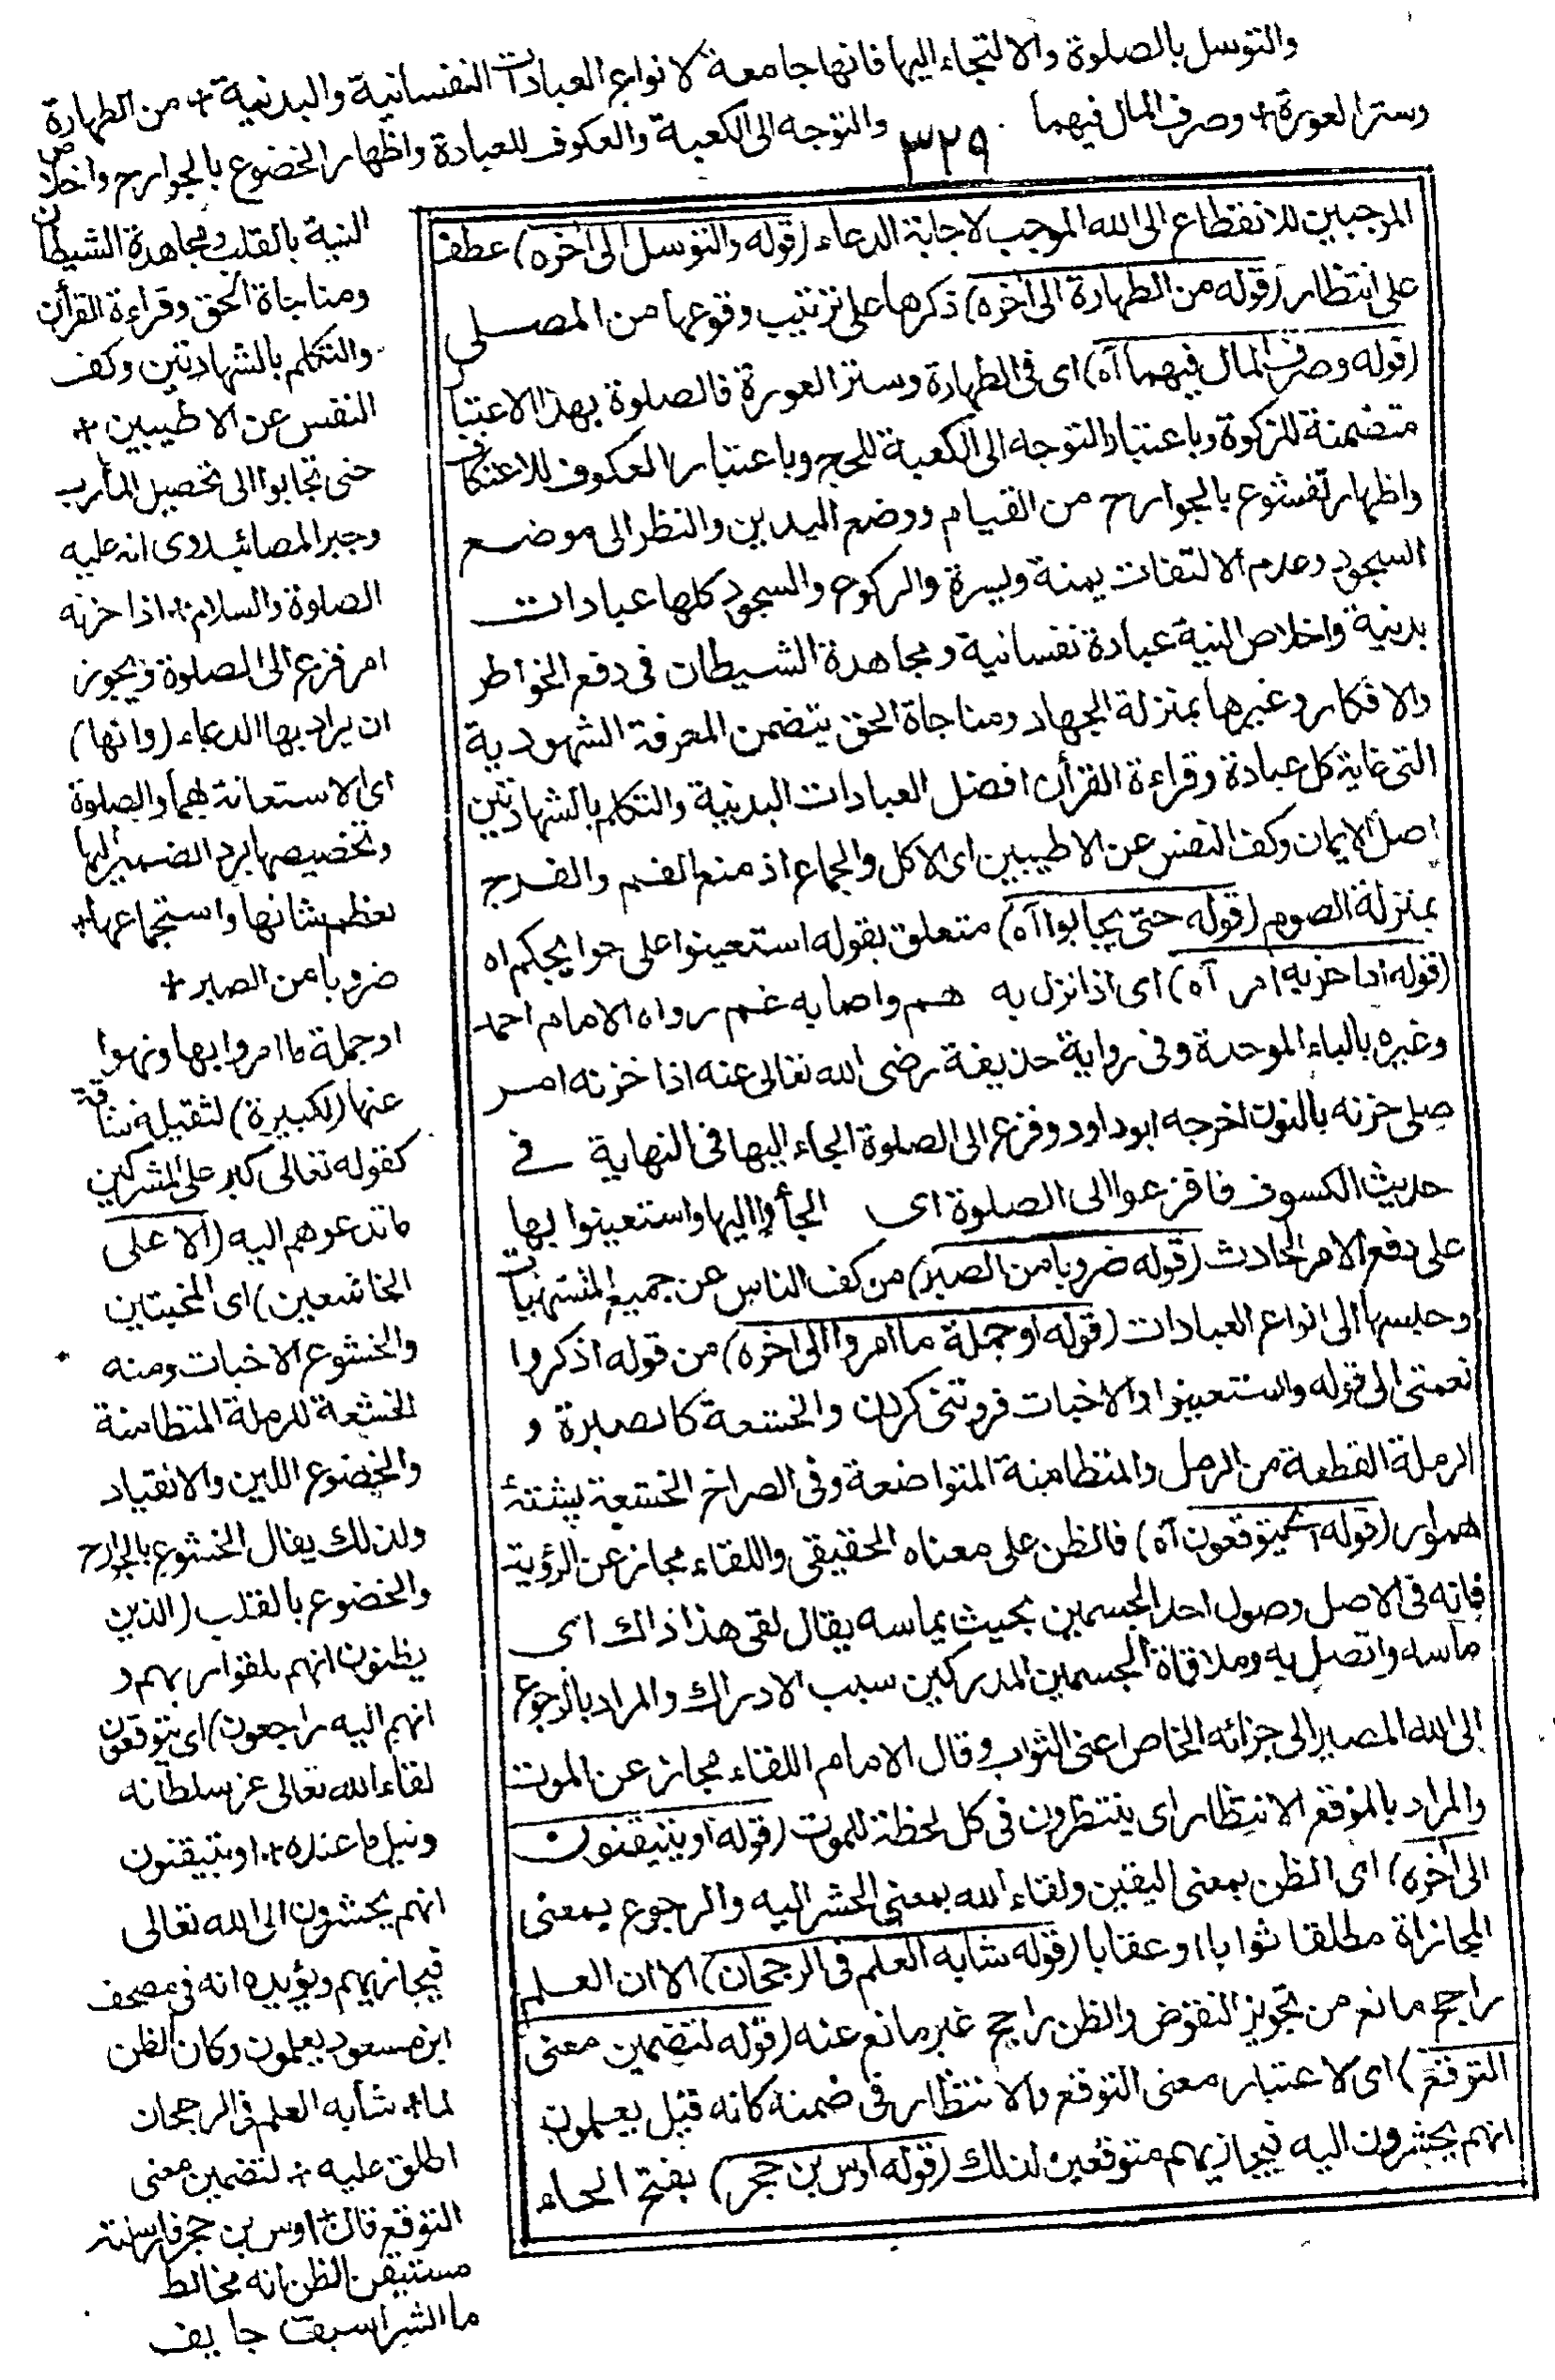 والتوسل بالصلوة والالتجاء اليها فانها جامعة لانواع العبادات النفسانية والبدنية + من الطهارة
وستر العورة + وصرف المال فيهما
٣٢٩
والتوجه الى الكعبة والعكوف للعبادة واظهار الخضوع بالجوارح واخلاص
النية بالقلب ومجاهدة الشيطان
ومناجاة الحق وقراءة القرأن
والتكلم بالشهادتين وكف
النفس عن الاطيبين +
حتى تجابوا الى تحصيل المأرب
وجبر المصائب روى انه عليه
الصلوة والسلام + اذا حزنه
امر فزع الى الصلوة ويجوز
ان يراد بها الدعاء (وانها)
اى الاستعانة بهما والصلوة
وتخصيصها برد الضمير اليها
لعظم شانها واستجماعها +
ضروبا من الصبر +
او جملة ما امروا بها ونهوا
عنها (لكبيرة) لثقيلة شاقة
كقوله تعالى كبر على المشركين
ما تدعوهم اليه (الا على
الخاشعين) اى المخبتين
والخشوع الاخبات ومنه
الخشعة للرملة المتطامنة
والخضوع اللين والانقياد
ولذلك يقال الخشوع بالجوارح
والخضوع بالقلب (الذين
يظنون انهم ملقوا ربهم و
انهم اليه راجعون) اى يتوقعون
لقاء الله تعالى عز سلطانه
ونيل ما عنده + او يتيقنون
انهم يحشرون الى الله تعالى
فيجازيهم ويؤيده انه فى مصحف
ابن مسعود يعلمون وكان الظن
لما + شابه العلم فى الرجحان
اطلق عليه + لتضمين معنى
التوقع قال + اوس بن حجر فارسلته
مستيقن الظن انه مخالط
ما الشراسيف جايف
الموجبين للانقطاع الى الله الموجب لاجابة الدعاء (قوله والتوسل الى اخره) عطف
على انتظار (قوله من الطهارة الى اخره) ذكرها على ترتيب وقوعها من المصلى
(قوله وصرف المال فيهما آه) اى فى الطهارة وستر العورة فالصلوة بهذا الاعتبار
متضمنة للزكوة وباعتبار التوجه الى الكعبة للحج وباعتبار العكوف للاعتكاف
واظهار تخشوع بالجوارح من القيام ووضع اليدين والنظر الى موضع
السجود وعدم الالتفات يمنة ويسرة والركوع والسجود كلها عبادات
بدنية واخلاص النية عبادة نفسانية ومجاهدة الشيطان فى دفع الخواطر
والافكار وغيرها بمنزلة الجهاد ومناجاة الحق يتضمن المعرفة الشهودية
التى غاية كل عبادة وقراءة القرأن افضل العبادات البدنية والتكلم بالشهادتين
اصل الايمان وكف النفس عن الاطيبين اى الاكل والجماع اذ منع الفم والفرج
بمنزلة الصوم (قوله حتى يجابوا آه) متعلق بقوله استعينوا على حوايجكم اه
(قوله اذا حزبه امر آه) اى اذا نزل به هم واصابه غم رواه الامام احمد
وغيره بالباء الموحدة وفى رواية حذيفة رضى الله تعالى عنه اذا حزنه امر
صلى حزنه بالنون اخرجه ابو داود وفزع الى الصلوة الجاء اليها فى النهاية فى
حديث الكسوف فافزعوا الى الصلوة اى الجأوا اليها واستعينوا بها
على دفع الامر الحادث (قوله ضروبا من الصبر) من كف الناس عن جميع المشتهيات
وحبسها الى انواع العبادات (قوله او جملة ما امروا الى اخره) من قوله اذكروا
نعمتى الى قوله واستعينوا والاخبات فروتنى كردن والخشعة كالصبرة و
الرملة القطعة من الرمل والمتطامنة المتواضعة وفى الصراح الخشعة پشتهٔ
هموار (قوله اى يتوقعون آه) فالظن على معناه الحقيقى واللقاء مجاز عن الرؤية
فانه فى الاصل وصول احد الجسمين بحيث يماسه يقال لقى هذا ذاك اى
ماسه واتصل به وملاقاة الجسمين المدركين سبب الادراك والمراد بالرجوع
الى الله المصير الى جزائه الخاص اعنى الثواب وقال الامام اللقاء مجاز عن الموت
والمراد بالموقع الانتظار اى ينتظرون فى كل لحظة للموت (قوله او يتيقنون
الى اخره) اى الظن بمعنى اليقين ولقاء الله بمعنى الحشر اليه والرجوع بمعنى
المجازاة مطلقا ثوابا او عقابا (قوله شابه العلم فى الرجحان) الا ان العلم
راجح مانع من تجويز النقوض والظن راجح غير مانع عنه (قوله لتضمين معنى
التوقع) اى لاعتبار معنى التوقع والانتظار فى ضمنه كانه قيل يعلمون
انهم يحشرون اليه فيجازيهم متوقعين لذلك (قوله اوس بن حجر) بفتح الحاء